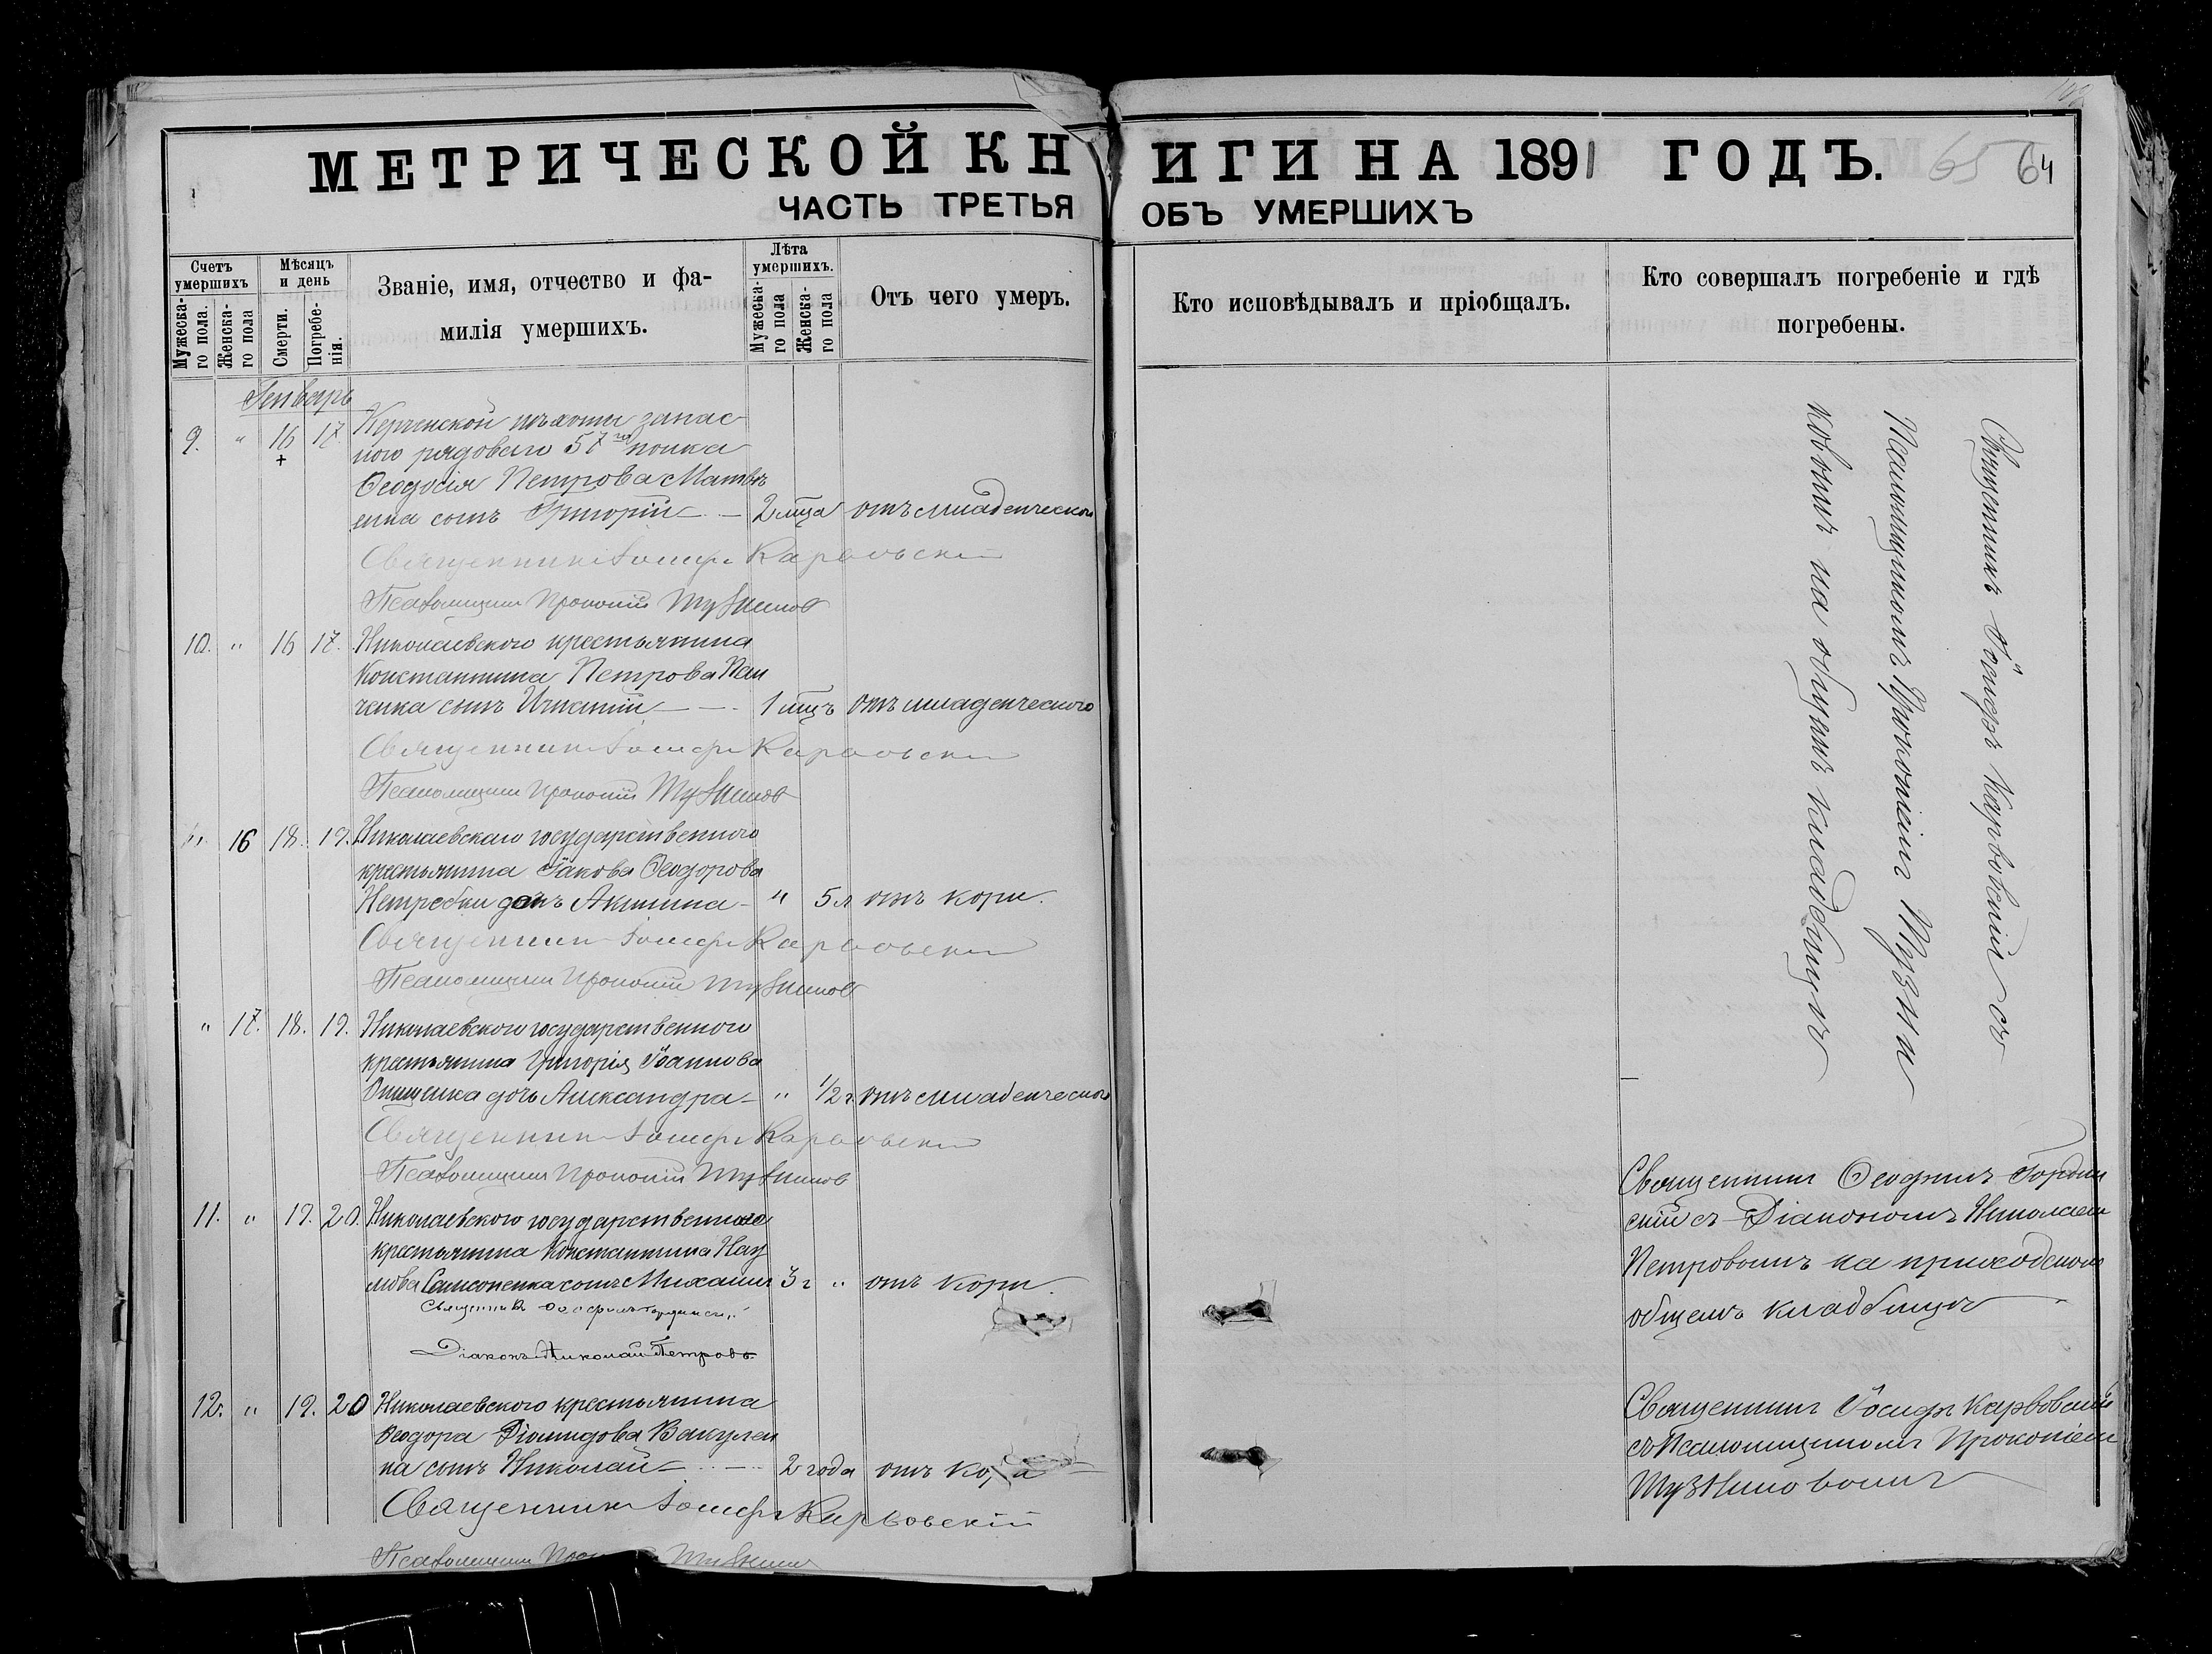 МЕТРИЧЕСКОЙ КНИГИ НА 1891 ГОДЪ.
65 64
ЧАСТЬ ТРЕТЬЯ ОБЪ УМЕРШИХЪ
Счетъ умершихъ
Мужеска-го пола.
Женска-го пола
Мѣсяцъ и день
Смерти.
Погребе-нія.
Званіе, имя, отчество и фа-
милія умершихъ.
Лѣта умершихъ.
Мужеска-го пола
Женска-го пола
Отъ чего умеръ.
Кто исповѣдывалъ и пріобщалъ.
Кто совершалъ погребеніе и гдѣ
погребены.
Генварь
9. " 16 17 Керченской пѣхоты запас-
ного рядоваго 57го полка
Ѳеодосія Петрова Матвѣ
енка сынъ Григорій 2 мца отъ младенческой
Священникъ Іосифъ Карвовскій
Псаломщикъ Прокопій Тузниковъ
10. " 16 17. Николаевского крестьянина
Константина Петрова Пан
ченка сынъ Игнатій 1 мцъ отъ младенческого
Священникъ Іосифъ Карвовскій
Псаломщикъ Прокопій Тузниковъ
" 16 18. 19. Николаевскаго государственного
крестьянина Іакова Ѳеодорова
Нетребки дочь Акилина " 5 л отъ кори.
Священникъ Іосифъ Карвовскій
Псаломщикъ Прокопій Тузниковъ
" 17. 18. 19. Николаевского государственного
крестьянина Григорія Іоаннова
Онищенка дочь Александра " 1/2 г. отъ младенческого
Священникъ Іосифъ Карвовскій
Псаломщикъ Прокопій Тузниковъ
11. " 19. 20. Николаевского государственного
крестьянина Константина Нау
мова Самсоненка сынъ Михаилъ 3 г " отъ кори.
Священникъ Ѳеофилъ
Діаконъ Николай Петровъ
12. " 19. 20 Николаевского крестьянина
Ѳеодора Діомидова Вакулен
ка сынъ Николай 2 года отъ кори
Священникъ Іосифъ Карвовскій
Псаломщикъ
Священникъ Іосифъ Карвовскій съ
Псаломщикомъ Прокопіемъ Тузни
ковымъ на общемъ кладбищѣ
Священникъ Ѳеофилъ
скій съ Діакономъ Николаем
Петровымъ на приходском
общемъ кладбищѣ
Священникъ Іосифъ Карвовскій
съ Псаломщикомъ Прокопіем
Тузниковымъ